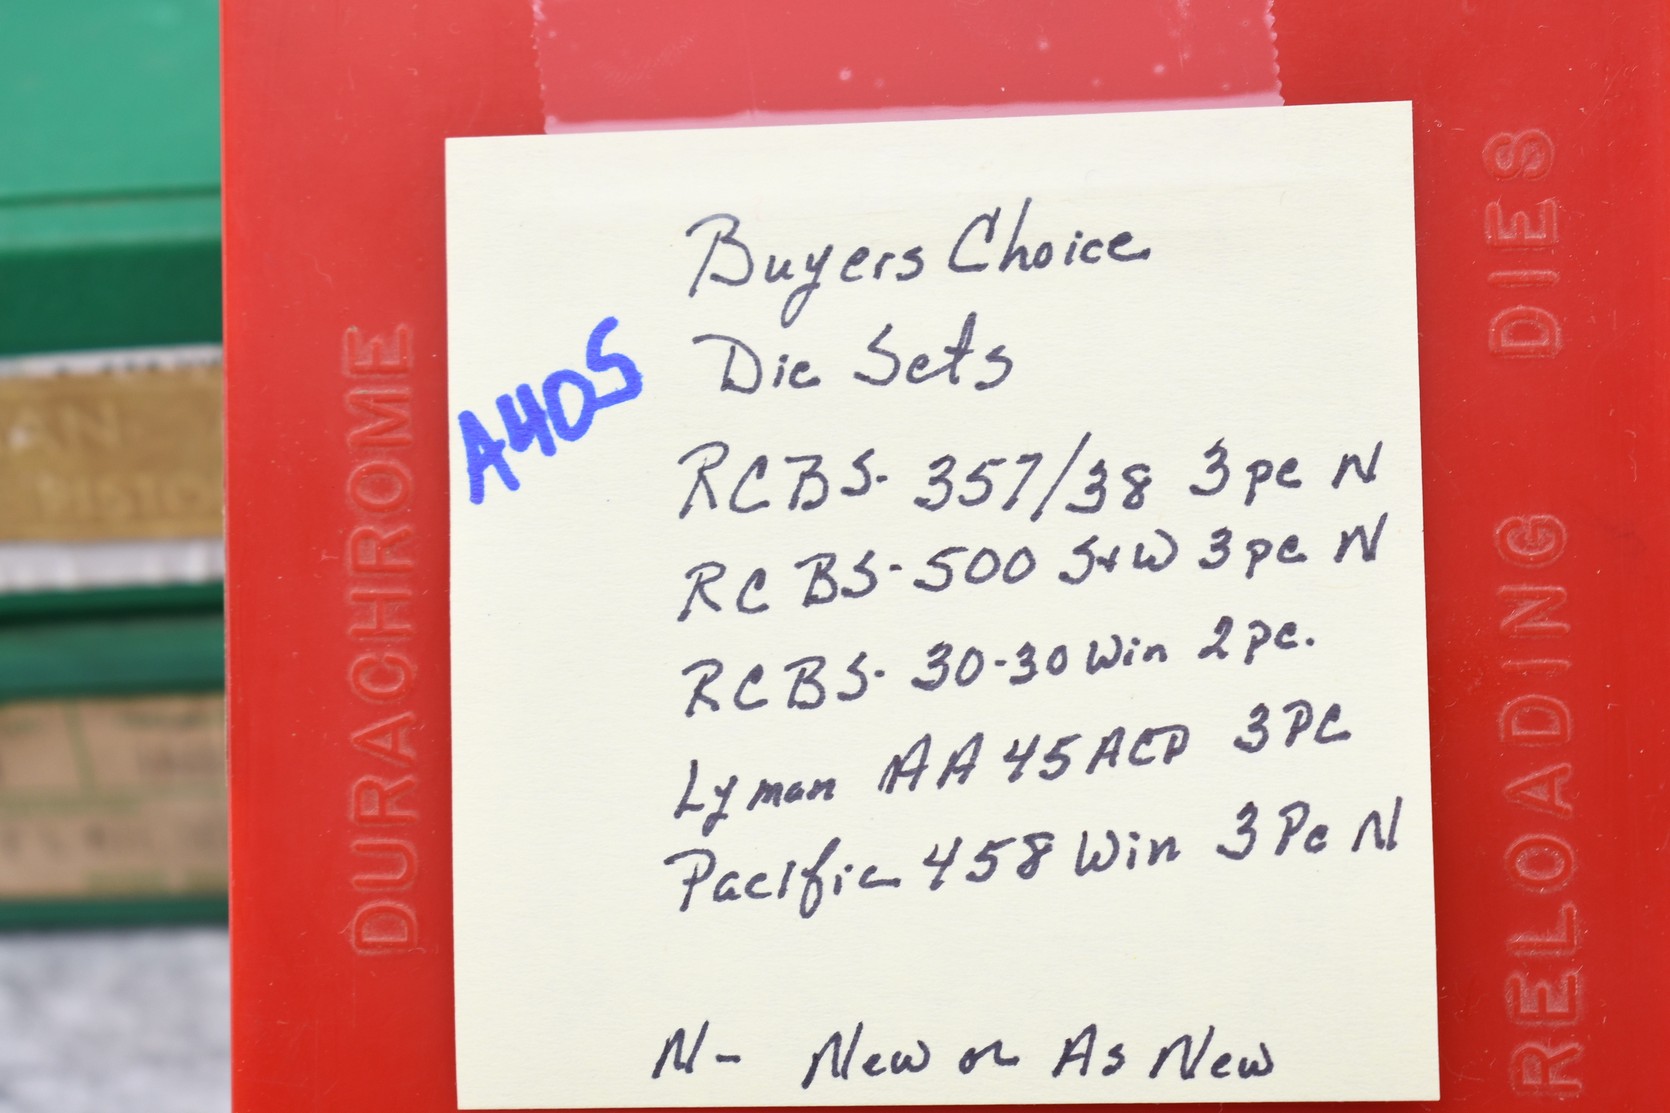 Buyers Choice
Die Sets
A405
RCBS- 357/38 3pc N
RCBS- 500 S+W 3pc N
RCBS- 30-30 Win 2pc.
Lyman AA 45 ACP 3PC
Pacific 458 Win 3Pc N
N- New or As New
DURACHROME
RELOADING DIES
AN
PISTO